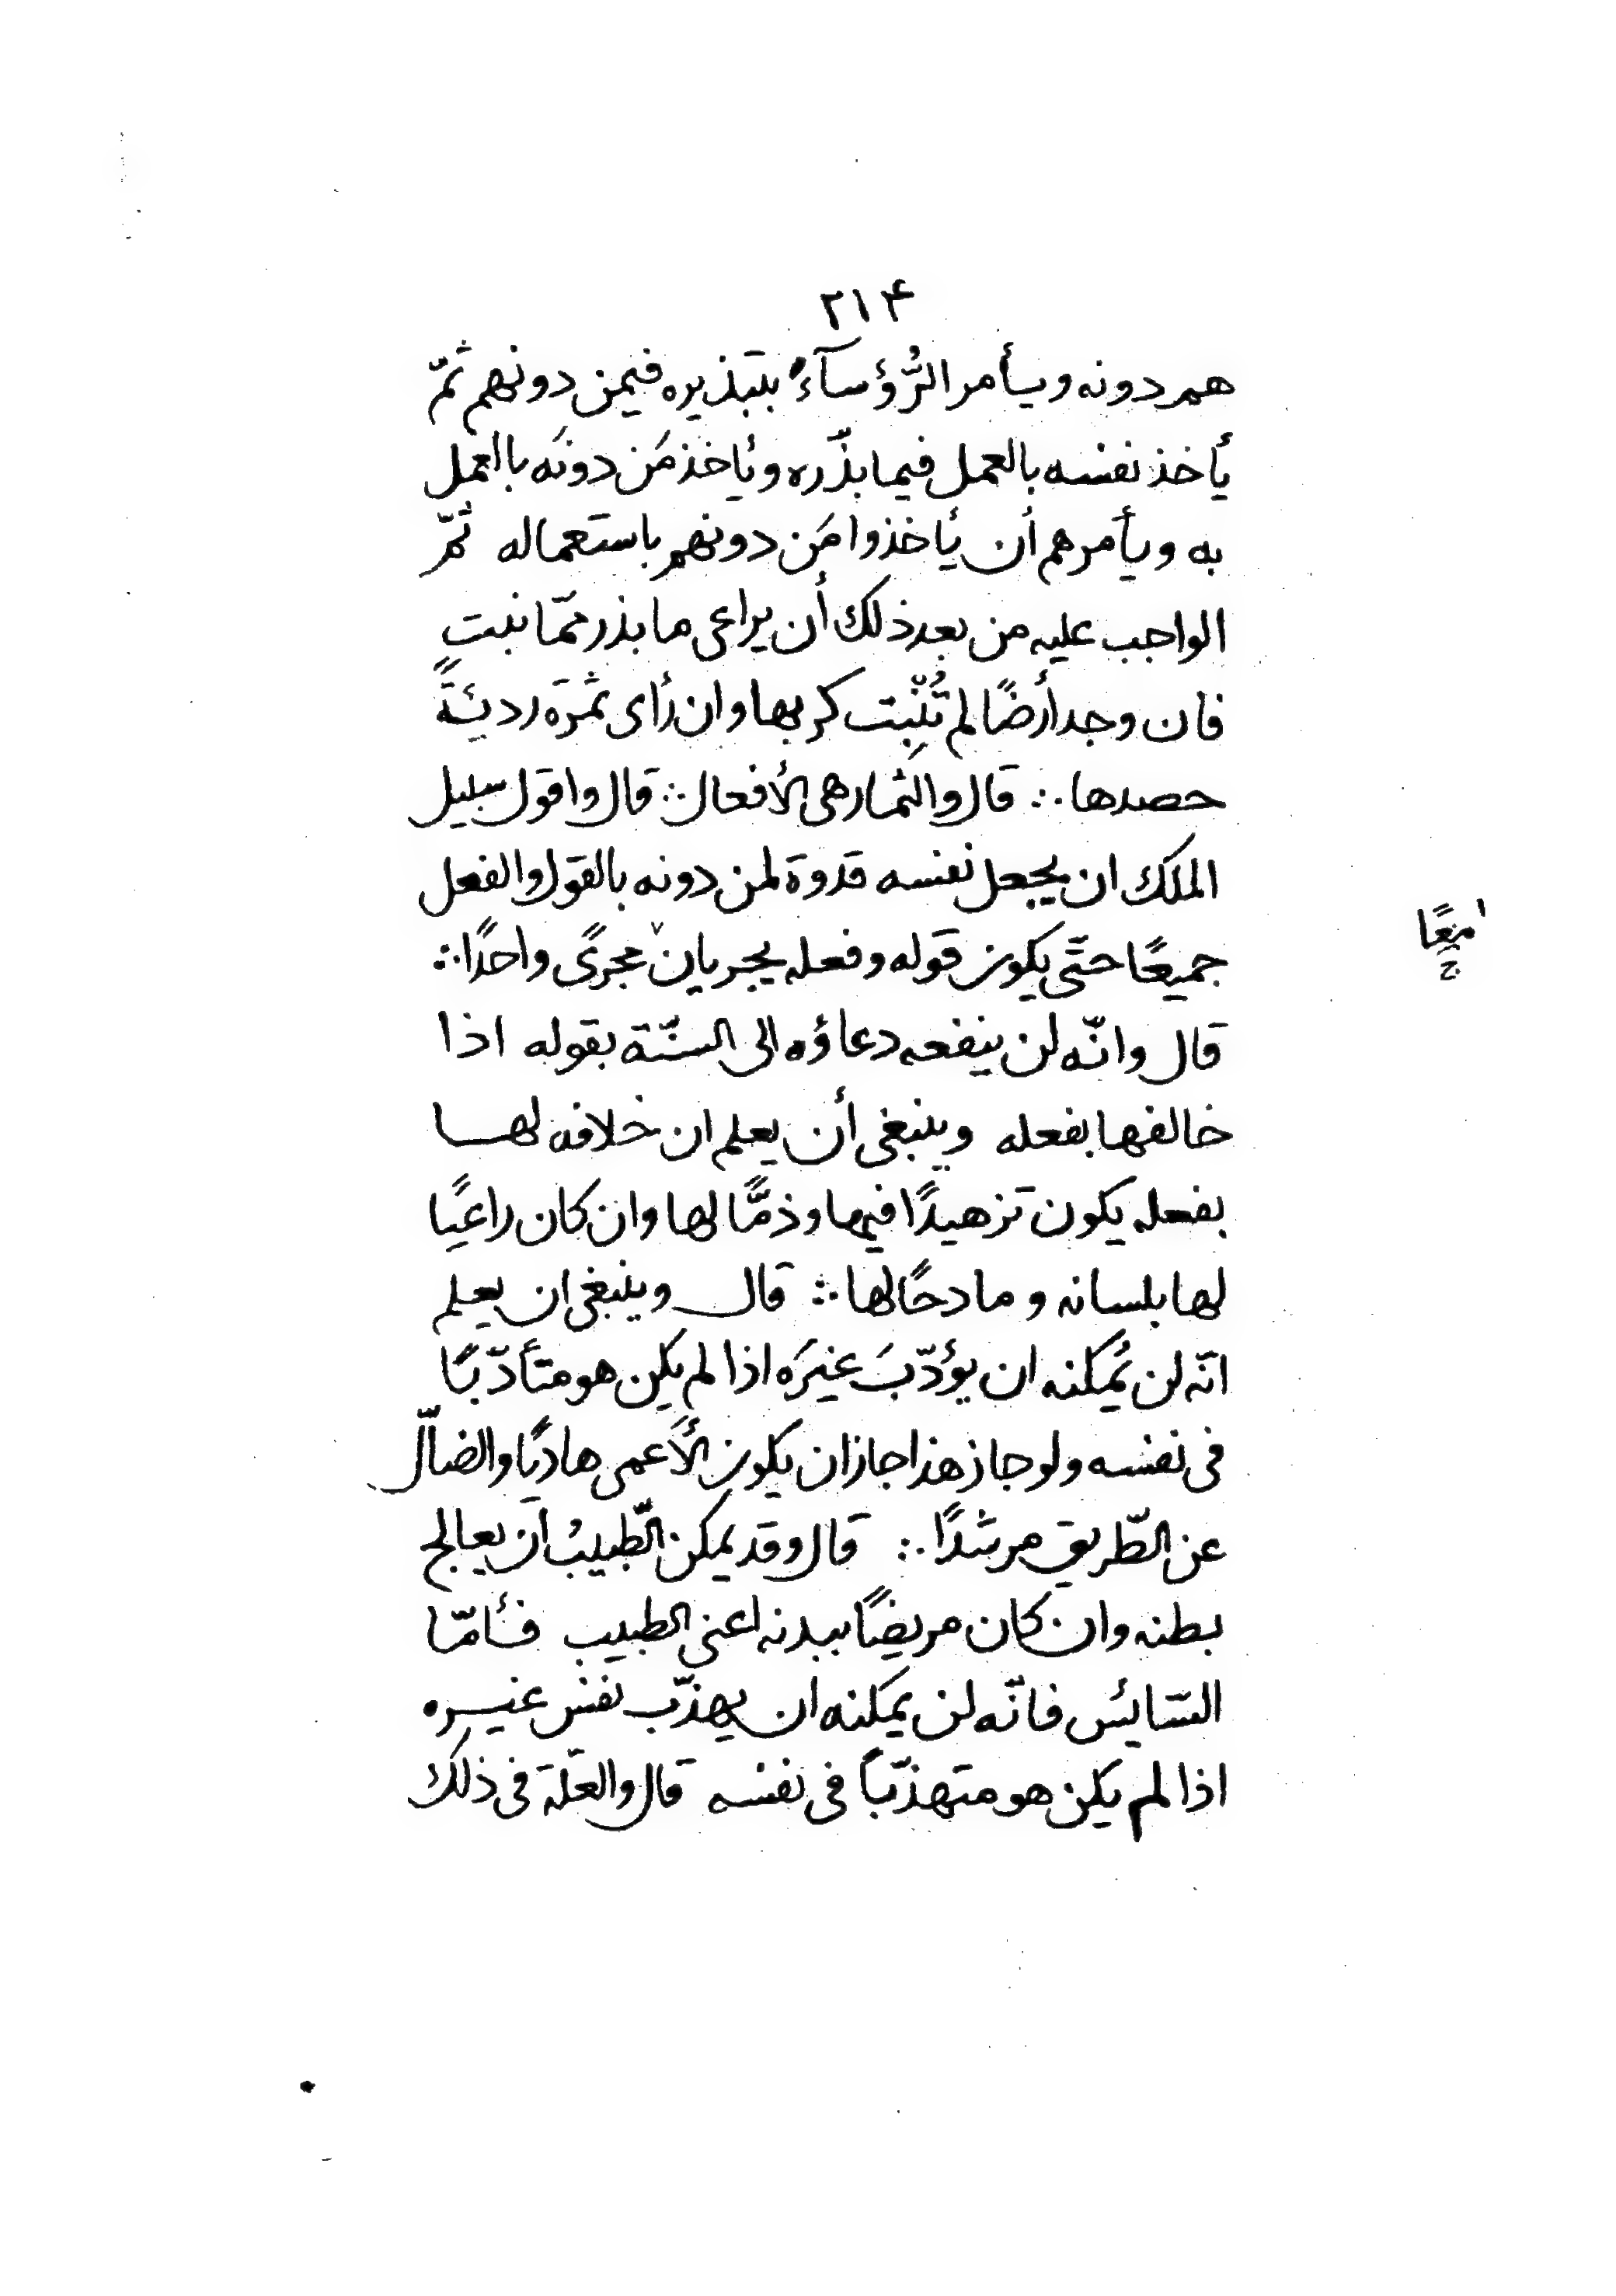 ۲۱۴
هم دونه ويأمر الرُّؤسآءُ بتبذيره فيمن دونهم ثمّ
يأخذ نفسه بالعمل فيما بذّره ويأخذ مَن دونَه باالعمل
به ويأمرهم أن يأخذوا مَن دونهم باستعماله ثمّ
الواجب عليه من بعد ذلك أن يراعى ما بذر ممّا نبت
فان وجد أرضًا لم تُنْبِت كربها وان رأى ثمرَة رديئةً
حصدها ∴ قال والثمار هى الأفعال ∴ قال واقول سبيل
الملك ان يجعل نفسه قدوة لمن دونه بالقول والفعل
جميعًا حتّى يكون قوله وفعله يجريان مجرىً واحدًا ∴
قال وانّه لن ينفعه دعاؤه الى السنّة بقوله اذا
خالفها بفعله وينبغى أن يعلم ان خلافه لها
بفعله يكون تزهيدًا فيها وذمًّا لها وان كان راعيًا
لها بلسانه ومادحًا لها ∴ قال وينبغى ان يعلم
انّه لن يُمكنه ان يؤدّبَ غيرَه اذا لم يكن هو متأدّبًا
فى نفسه ولو جاز هذا جاز ان يكون الأعمى هاديًا والضالّ
عن الطّريق مرشدًا ∴ قال وقد يمكن الطّبيبُ أن يعالج
بطنه وان كان مريضًا ببدنه اعنى الطبيب فأمّا
السّايُس فانّه لن يمكنه ان يهذّب نفس غيره
اذا لم يكن هو متهذّبًا فى نفسه قال والعلّة فى ذلك